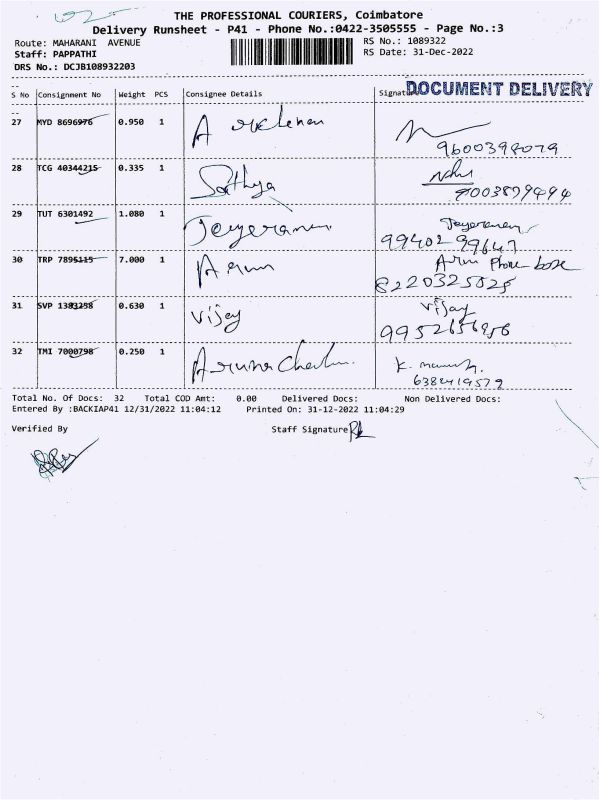 THE PROFESSIONAL COURIERS, Coimbatore
Delivery Runsheet - P41 - Phone No.:0422-3505555 - Page No.:3
Route: MAHARANI AVENUE
RS No.: 1089322
Staff: PAPPATHI
RS Date: 31-Dec-2022
DRS No.: DCJB108932203
S No Consignment No Weight PCS Consignee Details Signature
DOCUMENT DELIVERY
27 MYD 8696976 0.950 1
9600398079
28 TCG 40344215 0.335 1 Sathya
9003899494
29 TUT 6301492 1.080 1 Jeyeraman Jeyeraman
99402 99647
30 TRP 7895115 7.000 1 Arun Arun Phone
8220325525
31 SVP 1383258 0.630 1 Vijay Vijay
9952656956
32 TMI 7000798 0.250 1
6382419579
Total No. Of Docs: 32 Total COD Amt: 0.00 Delivered Docs: Non Delivered Docs:
Entered By :BACKIAP41 12/31/2022 11:04:12 Printed On: 31-12-2022 11:04:29
Verified By Staff Signature